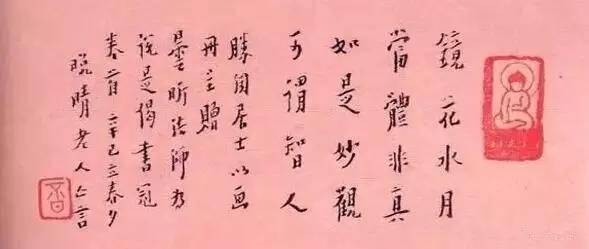 鏡花水月
當體非真
如是妙觀
可謂智人
勝居士以画
冊主贈
曇昕法師为
說是偈書冠
卷首 辛巳立春夕
晚晴老人亡言